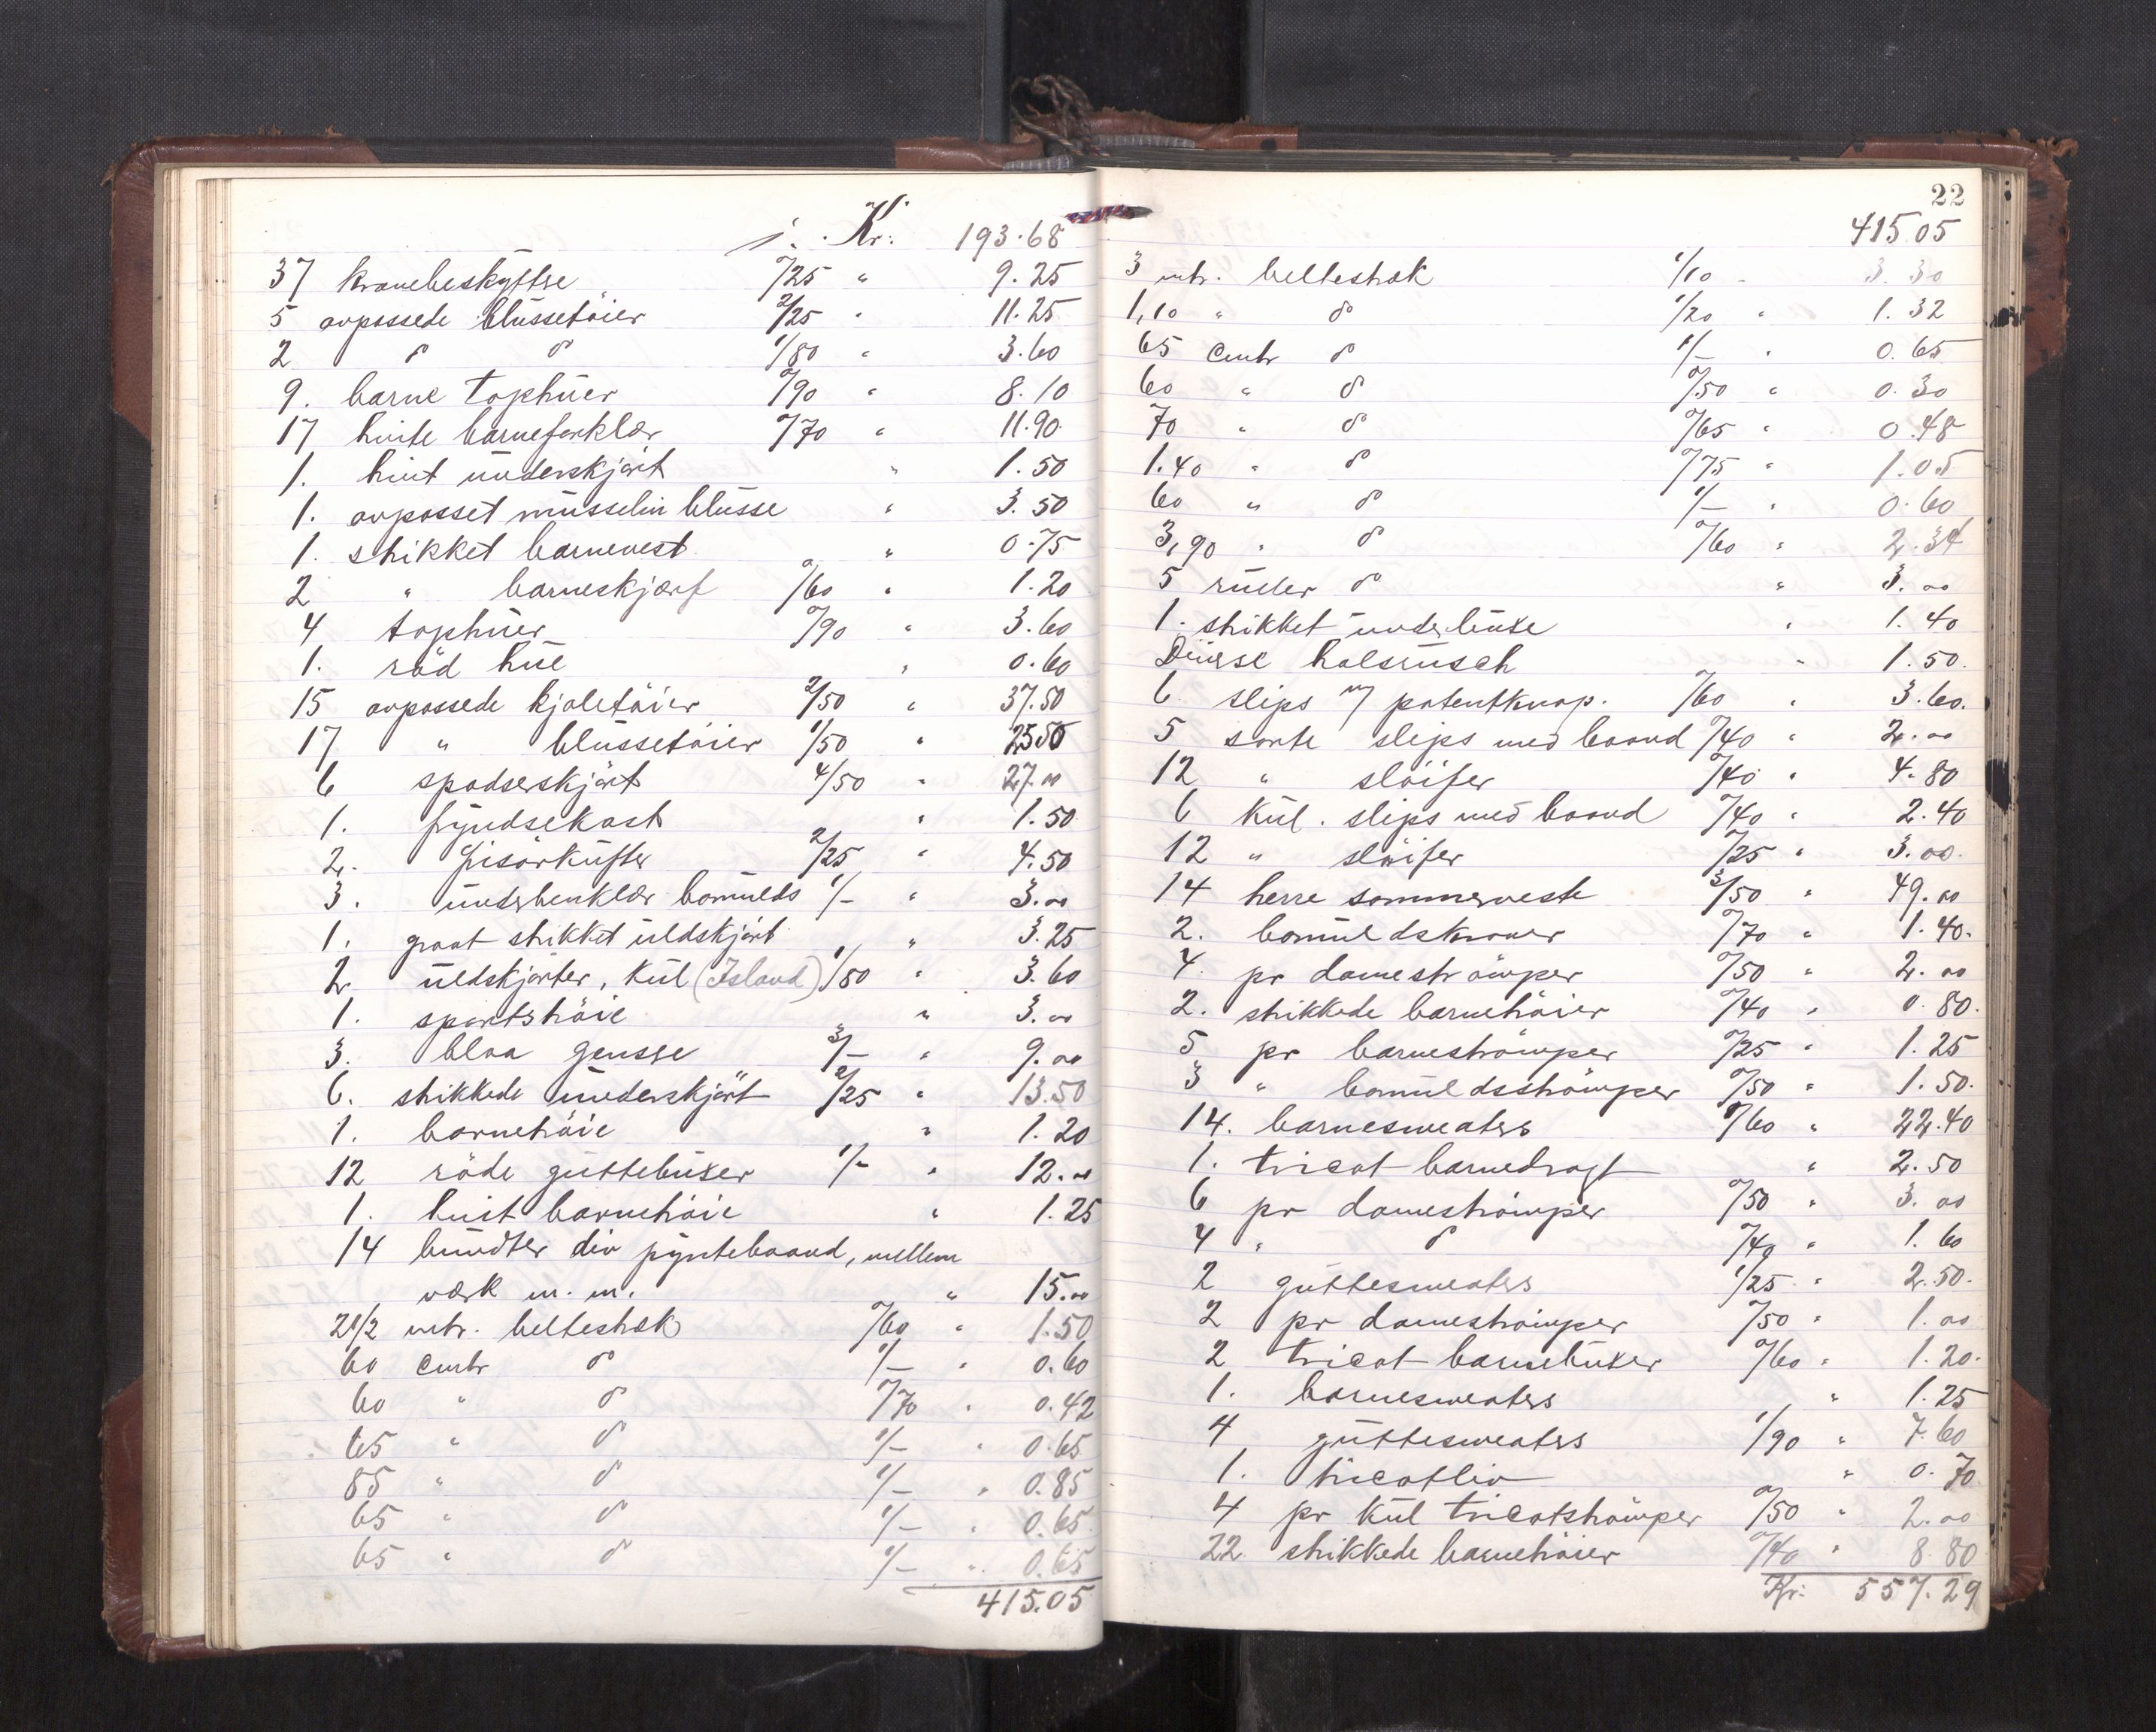 Kr: 193.68
37 kravebeskyttere %25 " 9.25
5 avpassede blussetöier 2/25 " 11.25
2 d d 1/80 " 3.60
9. barne tophuer %90 " 8.10
17 hvite barneforklær %70 " 11.90
1. hvit underskjört " 1.50
1. avpasset musselin bluse " 3.50
1. strikket barnevest " 0.75
2 " barneskjærf %60 " 1.20
4 tophuer %90 " 3.60
1. röd hue " 0.60
15 avpassede kjoletöier 2/50 " 37.50
17 " blussetöier 1/50 " 25.50
6 spadserskjört 4/50 " 27.00
1. 1.50
2. frisörkufter 2/25 " 4.50
3. underbenklær bomulds 1/- " 3.00
1. graat strikket uldskjört " 3.25
2 uldskjorter, kul (Island) 1/80 " 3.60
1. sportströie " 3.00
3. blaa gensere 3/- " 9.00
6. strikkede underskjört 2/25 " 13.50
1. barnetröie " 1.20
12 röde guttebukser 1/- " 12.00
1. hvit barnetröie " 1.25
14 bundter div pyntebaand, mellem
værk m.m. " 15.00
2 1/2 mtr. beltestrek %60 " 1.50
60 cmtr d 1/- " 0.60
60 " d %70 " 0.42
65 " d 1/- " 0.65
85 " d 1/- " 0.85
65 " d 1/- " 0.65
65 " d 1/- " 0.65
415.05
22
415.05
3 mtr. beltestrek 1/10 - 3.30
1,10 " d 1/20 " 1.32
65 cmtr d 1/- " 0.65
60 " d %50 " 0.30
70 " d %65 " 0.48
1.40 " d %75 " 1.05
60 " d 1/- " 0.60
3,90 " d %60 " 2.34
5 ruller d " 3.00
1. strikket underbukse " 1.40
Diverse halsrusch " 1.50
6 slips m/ patentknap. %60 " 3.60.
5 sorte slips med baand %40 " 2.00
12 " slöifer %40 " 4.80
6 kul. slips med baand %40 " 2.40
12 " slöifer %25 " 3.00
14 herre sommerveste 3/50 " 49.00
2. bomuldskraver %70 " 1.40.
4 pr dameströmper %50 " 2.00
2. strikkede barnetröier %40 " 0.80.
5 pr barneströmper %25 " 1.25
3 " bomuldsströmper %50 " 1.50.
14. barnesweaters 1/60 " 22.40
1. tricot barnedragt " 2.50
6 pr dameströmper %50 " 3.00
4 " d %40 " 1.60
2 guttesweaters 1/25 " 2.50.
2 pr dameströmper %50 " 1.00
2 tricot barnebukser %60 " 1.20.
1. barnesweaters " 1.25
4 guttesweaters 1/90 " 7.60
1. tricotliv " 0.70
4 pr kul tricotströmper %50 " 2.00
22 strikkede barnetröier %40 " 8.80
Kr: 557.29